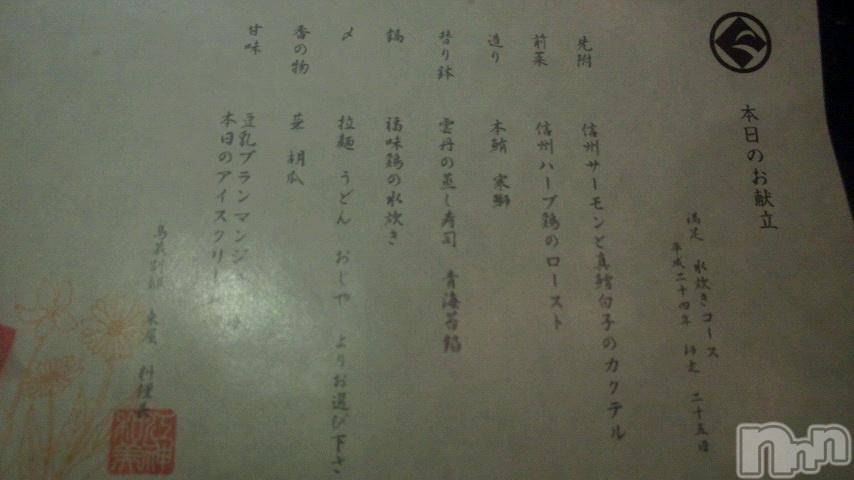 本日のお献立
満足 水炊きコース
平成二十四年 師走 二十五日
先附 信州サーモンと真鱈白子のカクテル
前菜 信州ハーブ鶏のロースト
造り 本鮪 寒鰤
替り鉢 雲丹の蒸し寿司 青海苔餡
鍋 福味鶏の水炊き
〆 拉麺 うどん おじや よりお選び下さ
香の物 蕪 胡瓜
甘味 豆乳ブランマンジ
本日のアイスクリー
料理長
nnn